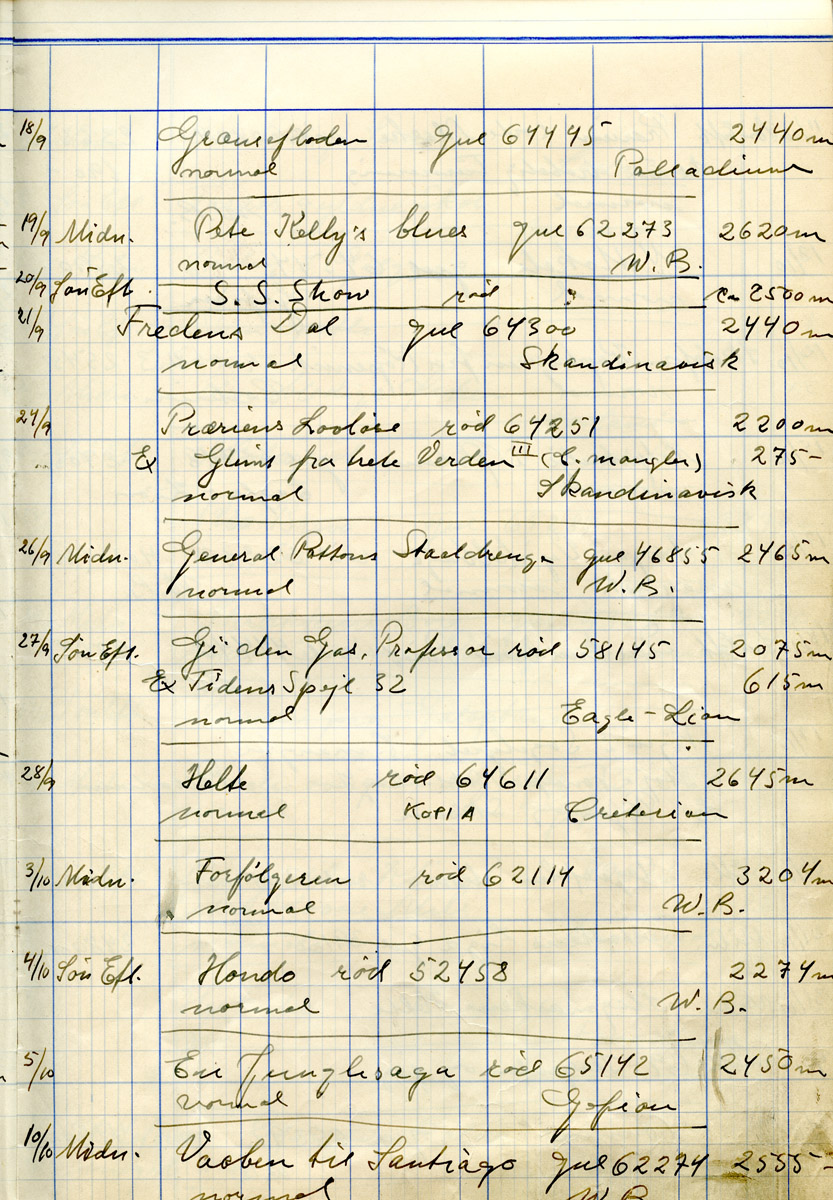 18/9 Grænsefloden gul 64445 2440m
normal Palladium
19/9 Midn. Pete Kelly's blues gul 62273 2620m
normal W.B.
20/9 Søn Eft. S.S. Show rød ? ca 2500m
21/9 Fredens Dal gul 64300 2440m
normal Skandinavisk
24/9 Præriens Lovløse rød 64251 2200m
Ex Glimt fra hele Verden III (C. mangler) 275-
normal Skandinavisk
26/9 Midn. General Pattons Staaldrenge gul 46855 2465m
normal W.B.
27/9 Søn Eft. Gi den Gas, Professor rød 58145 2075m
Ex Tidens Spejl 32 615m
normal Eagle-Lion
28/9 Helte rød 64611 2645m
normal KOPI A Criterion
3/10 Midn. Forfølgeren rød 62114 3204m
normal W.B.
4/10 Søn Eft. Hondo rød 52458 2274m
normal W.B.
5/10 En Junglesaga rød 65142 2450m
normal Gefion
10/10 Midn. Vaaben til Santiago gul 62274 2555-
normal W.B.